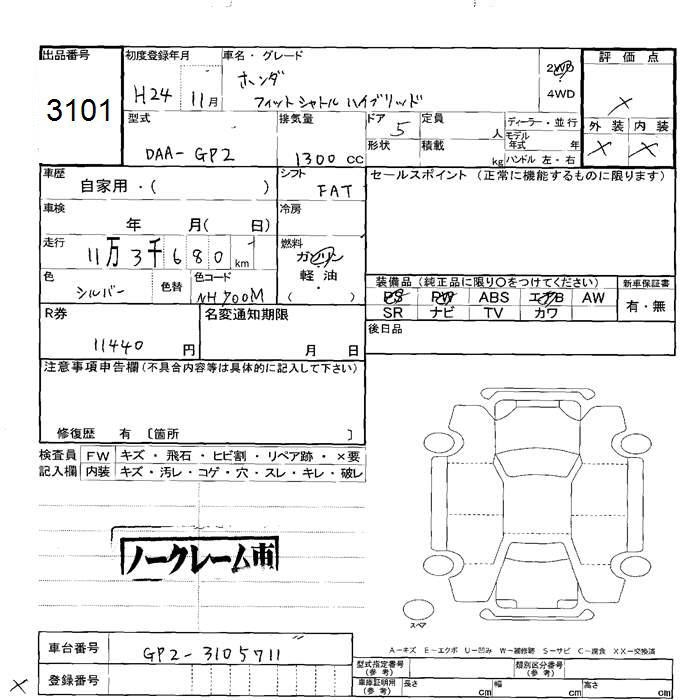 出品番号
3101
初度登録年月
H24 11月
車名・グレード
ホンダ
フィットシャトル ハイブリッド
2WD
4WD
評価点
×
外装 内装
× ×
型式
DAA-GP2
排気量
1300 cc
ドア 5
形状
定員
人
積載
kg
ディーラー・並行
モデル年式 年
ハンドル 左・右
車歴
自家用・( )
シフト
FAT
セールスポイント (正常に機能するものに限ります)
車検
年 月( 日)
冷房
走行
11万3千680 km
燃料
ガソリン
軽油
( ・ )
色
シルバー
色替
色コード
NH700M
装備品 (純正品に限り〇をつけてください)
PS PW ABS エアB AW
SR ナビ TV カワ
新車保証書
有・無
R券
11440 円
名変通知期限
月 日
後日品
注意事項申告欄 (不具合内容等は具体的に記入して下さい)
修復歴 有 〔箇所 〕
検査員記入欄
FW キズ・飛石・ヒビ割・リペア跡・×要
内装 キズ・汚レ・コゲ・穴・スレ・キレ・破レ
ノークレーム車
スペア
A-キズ E-エクボ U-凹み W-補修跡 S-サビ C-腐食 XX-交換済
車台番号
GP2-3105711
登録番号
×
型式指定番号
(参考)
類別区分番号
(参考)
車庫証明用
(参考)
長さ cm 幅 cm 高さ cm